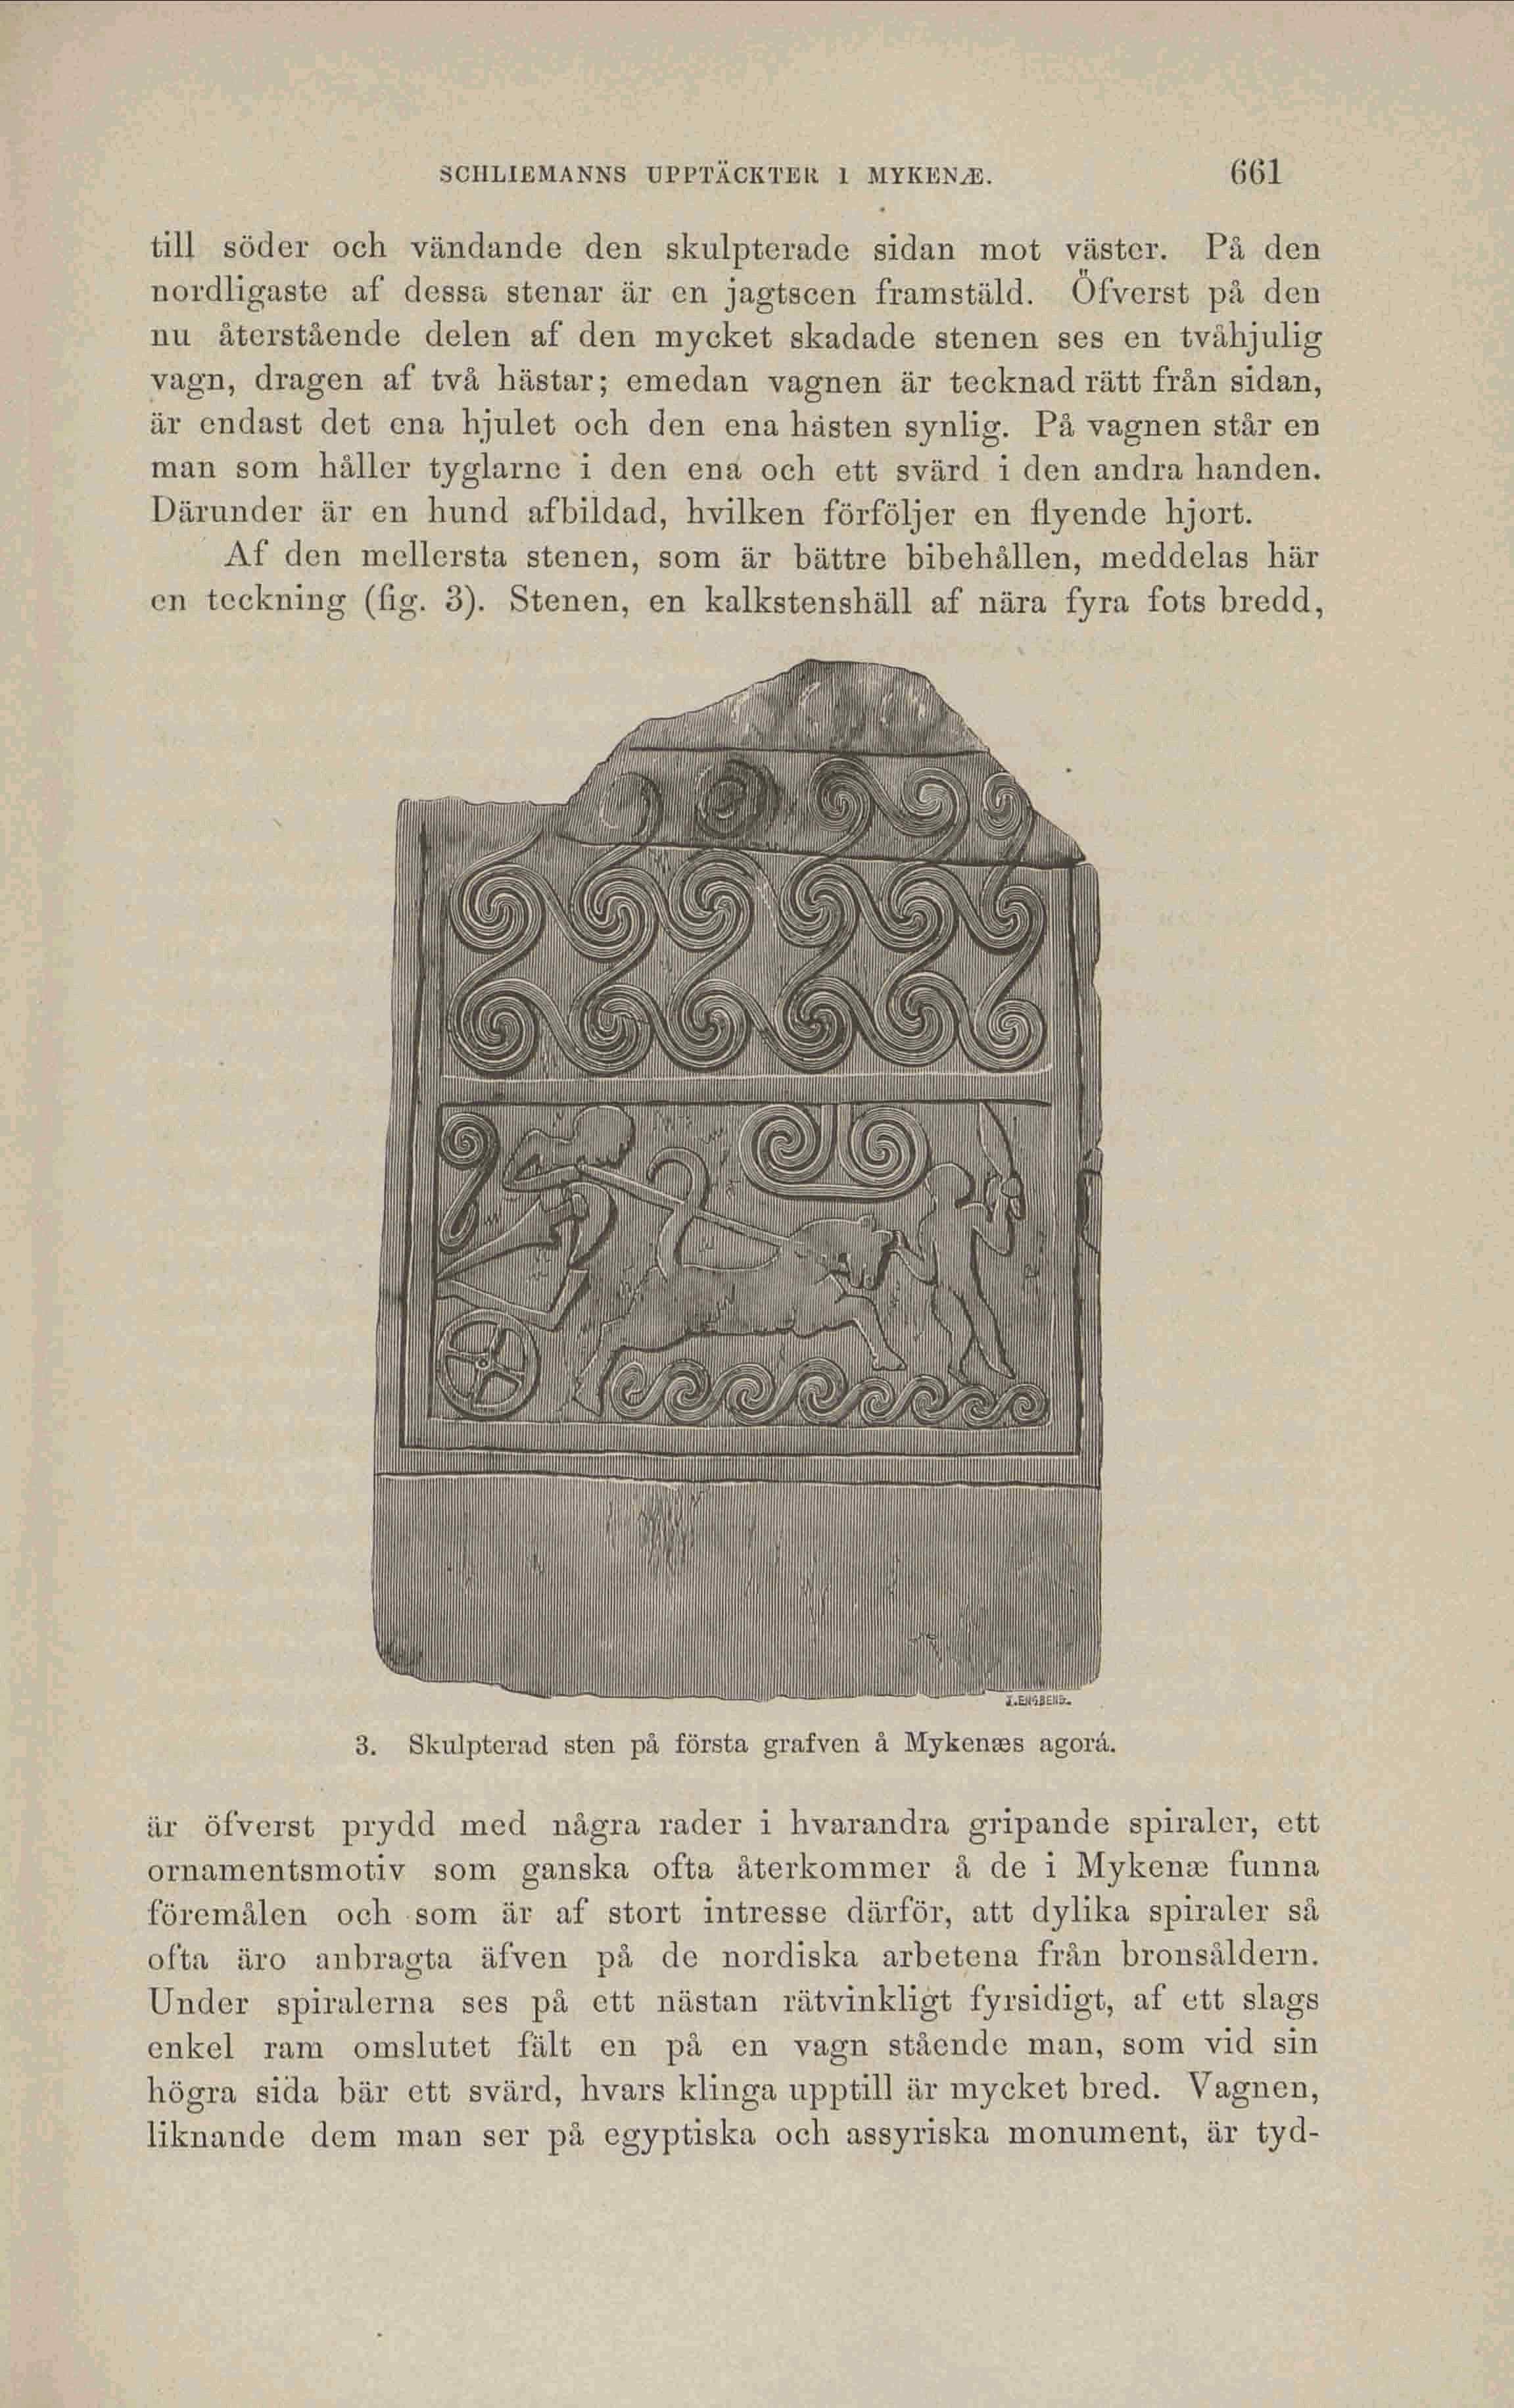 SCHLIEMANNS UPPTÄCKTER I MYKENÆ. 661
till söder och vändande den skulpterade sidan mot väster. På den
nordligaste af dessa stenar är en jagtscen framstäld. Öfverst på den
nu återstående delen af den mycket skadade stenen ses en tvåhjulig
vagn, dragen af två hästar; emedan vagnen är tecknad rätt från sidan,
är endast det ena hjulet och den ena hästen synlig. På vagnen står en
man som håller tyglarne i den ena och ett svärd i den andra handen.
Därunder är en hund afbildad, hvilken förföljer en flyende hjort.
Af den mellersta stenen, som är bättre bibehållen, meddelas här
en teckning (fig. 3). Stenen, en kalkstenshäll af nära fyra fots bredd,
J.ENGBERG.
3. Skulpterad sten på första grafven å Mykenæs agorá.
är öfverst prydd med några rader i hvarandra gripande spiraler, ett
ornamentsmotiv som ganska ofta återkommer å de i Mykenæ funna
föremålen och som är af stort intresse därför, att dylika spiraler så
ofta äro anbragta äfven på de nordiska arbetena från bronsåldern.
Under spiralerna ses på ett nästan rätvinkligt fyrsidigt, af ett slags
enkel ram omslutet fält en på en vagn stående man, som vid sin
högra sida bär ett svärd, hvars klinga upptill är mycket bred. Vagnen,
liknande dem man ser på egyptiska och assyriska monument, är tyd-